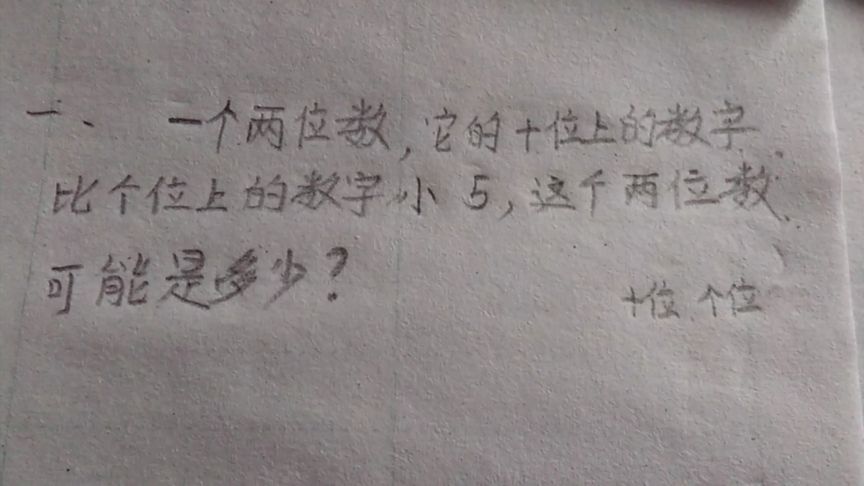 一、 一个两位数,它的十位上的数字
比个位上的数字小5,这个两位数
可能是多少?
十位 个位